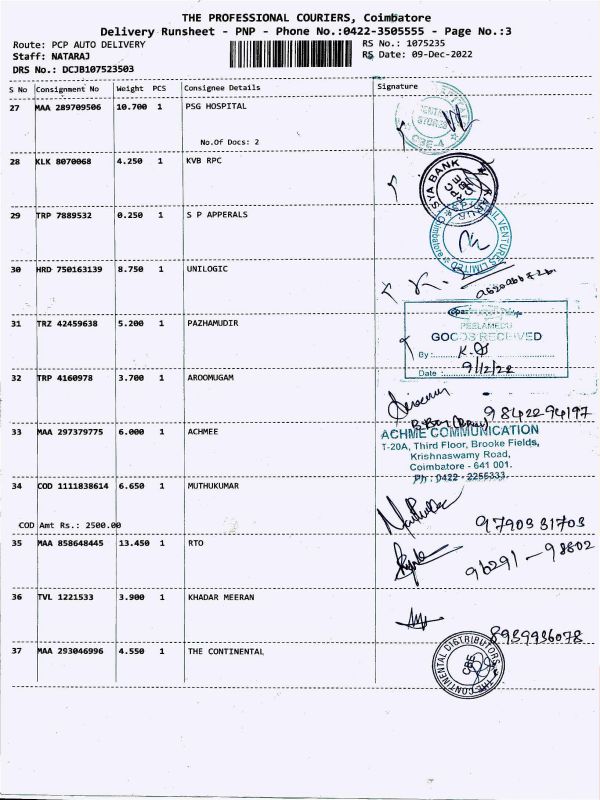 THE PROFESSIONAL COURIERS, Coimbatore
Delivery Runsheet - PNP - Phone No.:0422-3505555 - Page No.:3
Route: PCP AUTO DELIVERY RS No.: 1075235
Staff: NATARAJ RS Date: 09-Dec-2022
DRS No.: DCJB107523503
S No Consignment No Weight PCS Consignee Details Signature
27 MAA 289709506 10.700 1 PSG HOSPITAL
STORES
CBE-4
No.Of Docs: 2
28 KLK 8070068 4.250 1 KVB RPC
SYA BANK
29 TRP 7889532 0.250 1 S P APPERALS
VENTURES LIMITED
30 HRD 750163139 8.750 1 UNILOGIC
31 TRZ 42459638 5.200 1 PAZHAMUDIR
PEELAMEDU
GOODS RECEIVED
By :
Date : 9/12/22
32 TRP 4160978 3.700 1 AROOMUGAM
9842294197
33 MAA 297379775 6.000 1 ACHMEE
ACHME COMMUNICATION
T-20A, Third Floor, Brooke Fields,
Krishnaswamy Road,
Coimbatore - 641 001.
Ph : 0422 - 2255333
34 COD 1111838614 6.650 1 MUTHUKUMAR
COD Amt Rs.: 2500.00
9790331703
35 MAA 858648445 13.450 1 RTO
96291-98802
36 TVL 1221533 3.900 1 KHADAR MEERAN
8939936078
37 MAA 293046996 4.550 1 THE CONTINENTAL
THE CONTINENTAL DISTRIBUTORS
CBE